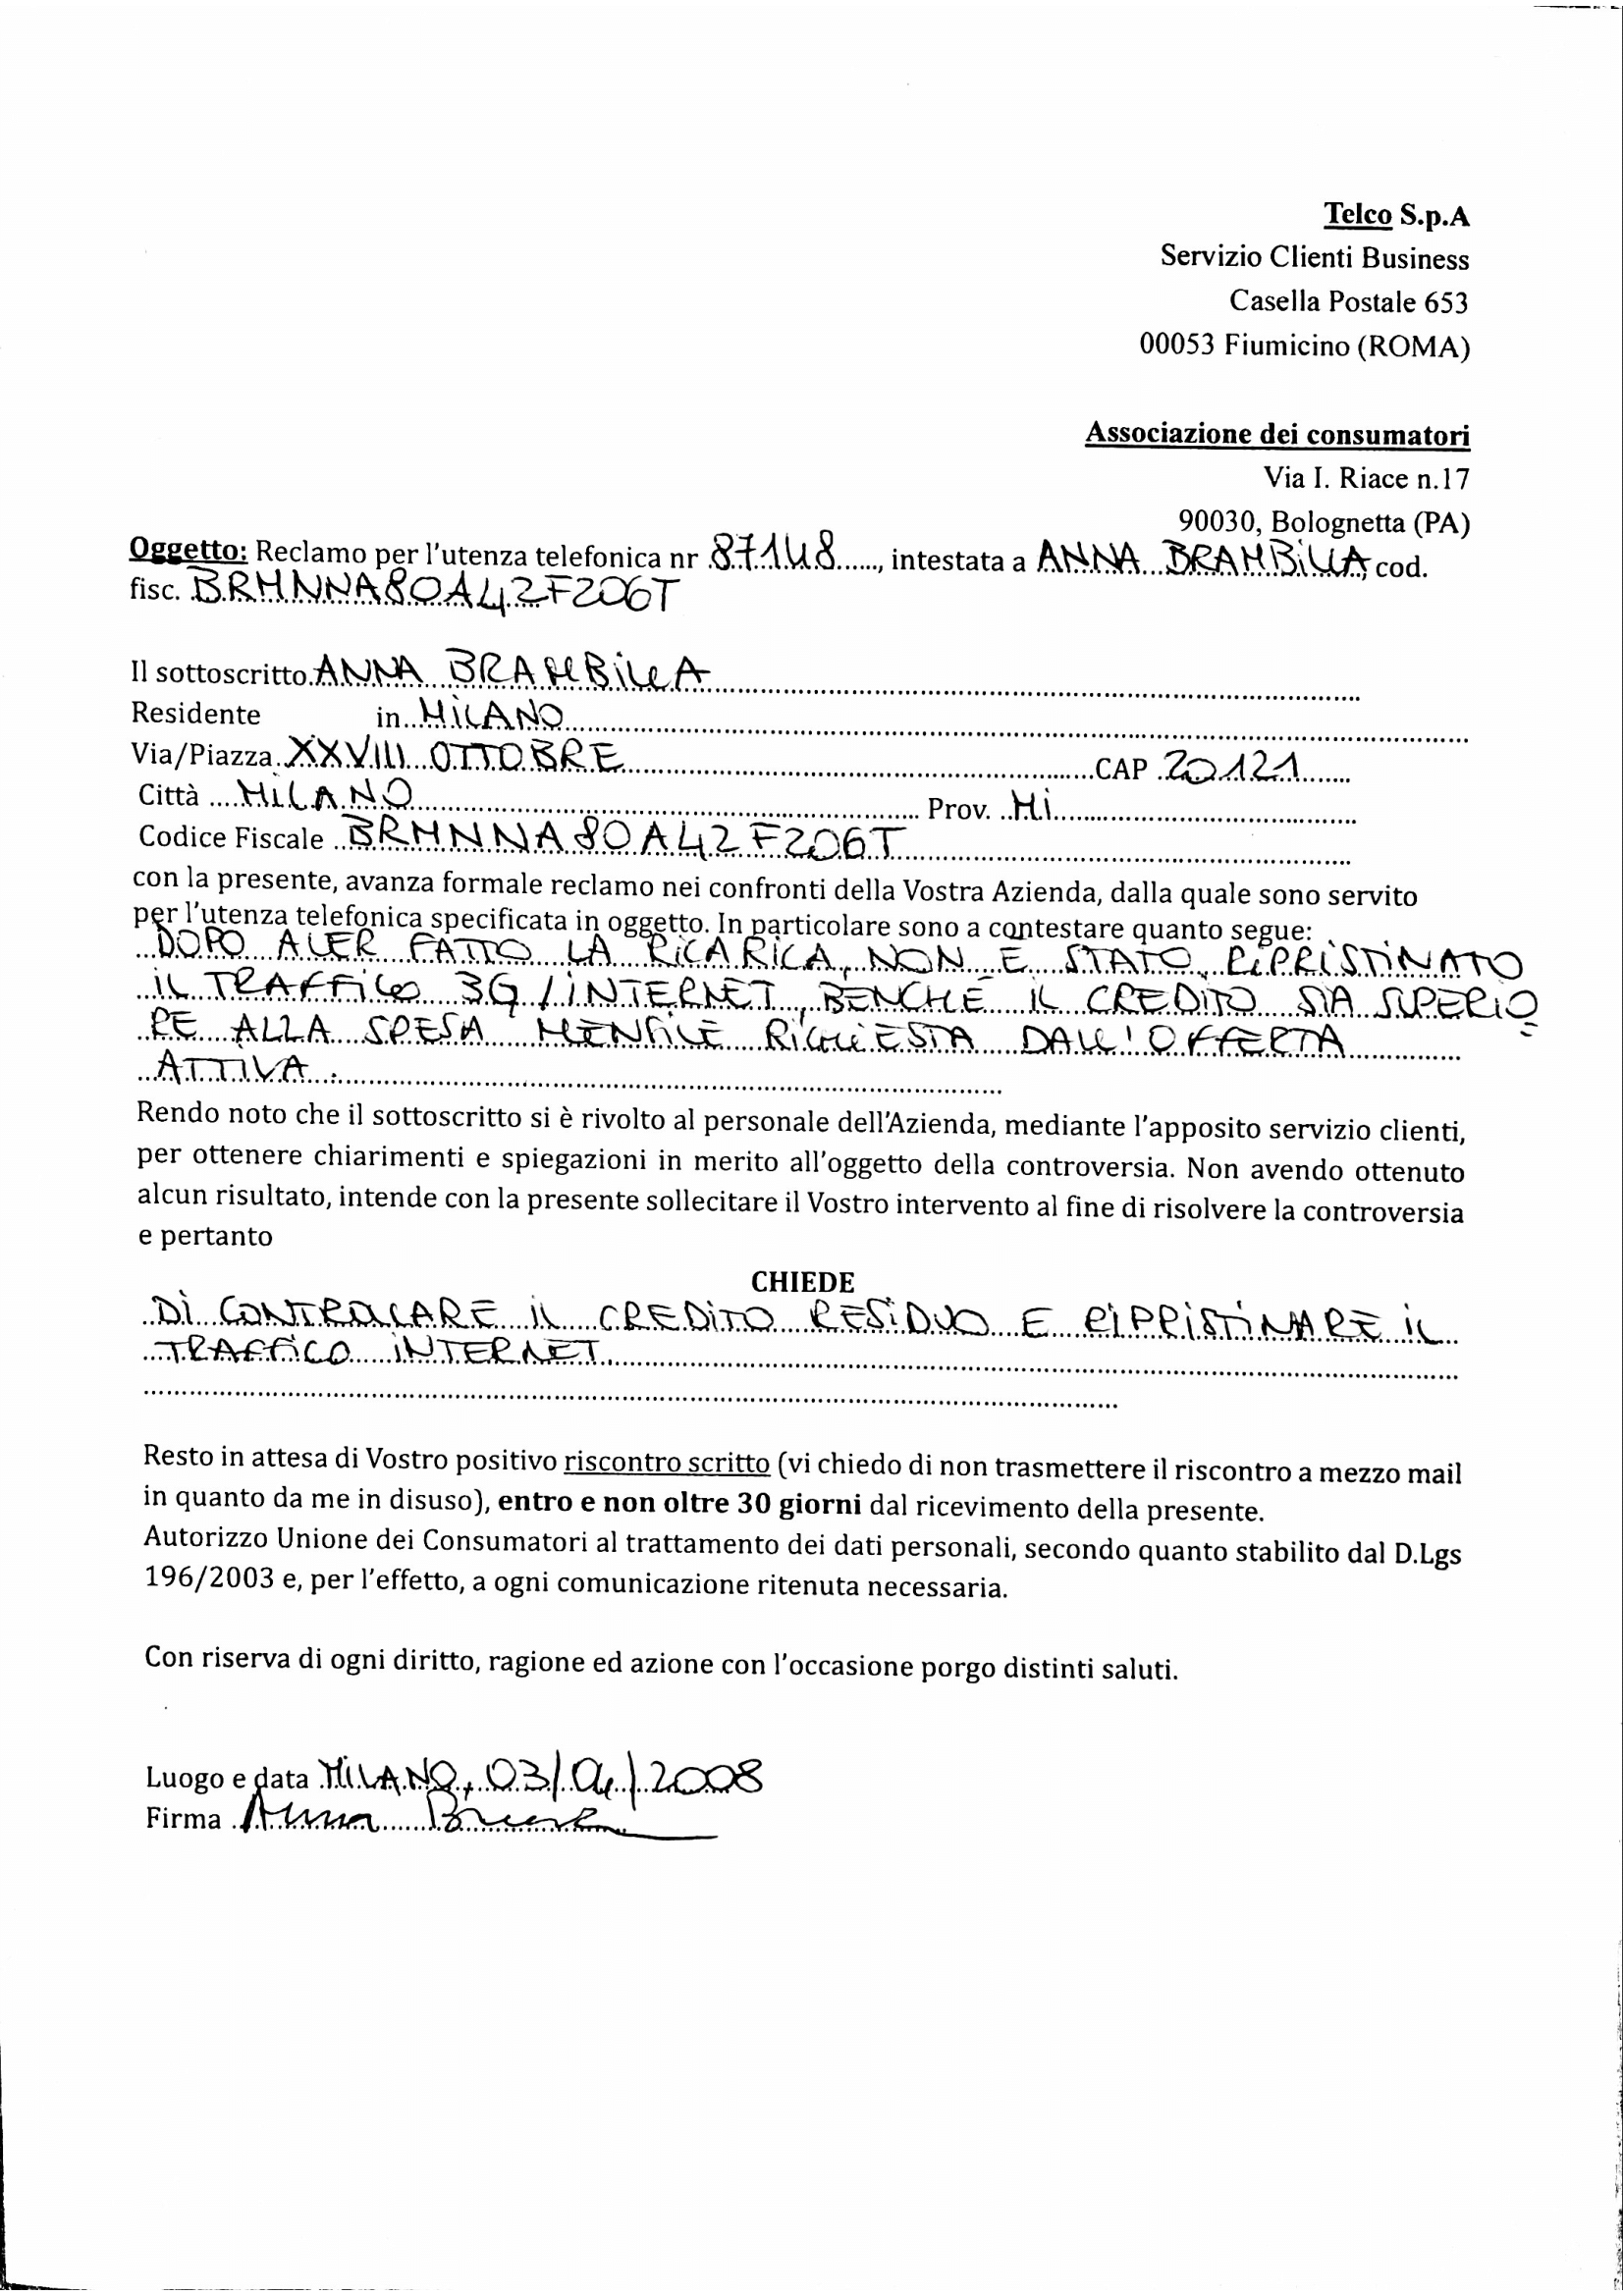 Telco S.p.A
Servizio Clienti Business
Casella Postale 653
00053 Fiumicino (ROMA)
Associazione dei consumatori
Via I. Riace n.17
90030, Bolognetta (PA)
Oggetto: Reclamo per l'utenza telefonica nr 87148......, intestata a ANNA BRAMBILLA, cod.
fisc. BRMNNA80A42F206T
Il sottoscritto ANNA BRAMBILLA
Residente in MILANO
Via/Piazza XXVIII OTTOBRE CAP 20121
Città MILANO Prov. MI
Codice Fiscale BRMNNA80A42F206T
con la presente, avanza formale reclamo nei confronti della Vostra Azienda, dalla quale sono servito
per l'utenza telefonica specificata in oggetto. In particolare sono a contestare quanto segue:
DOPO AVER FATTO LA RICARICA, NON È STATO RIPRISTINATO
IL TRAFFICO 3G/INTERNET, BENCHÉ IL CREDITO SIA SUPERIO
RE ALLA SPESA MENSILE RICHIESTA DALL'OFFERTA
ATTIVA.
Rendo noto che il sottoscritto si è rivolto al personale dell'Azienda, mediante l'apposito servizio clienti,
per ottenere chiarimenti e spiegazioni in merito all'oggetto della controversia. Non avendo ottenuto
alcun risultato, intende con la presente sollecitare il Vostro intervento al fine di risolvere la controversia
e pertanto
CHIEDE
DI CONTROLLARE IL CREDITO RESIDUO E RIPRISTINARE IL
TRAFFICO INTERNET
Resto in attesa di Vostro positivo riscontro scritto (vi chiedo di non trasmettere il riscontro a mezzo mail
in quanto da me in disuso), entro e non oltre 30 giorni dal ricevimento della presente.
Autorizzo Unione dei Consumatori al trattamento dei dati personali, secondo quanto stabilito dal D.Lgs
196/2003 e, per l'effetto, a ogni comunicazione ritenuta necessaria.
Con riserva di ogni diritto, ragione ed azione con l'occasione porgo distinti saluti.
Luogo e data MILANO, 03/04/2008
Firma Anna